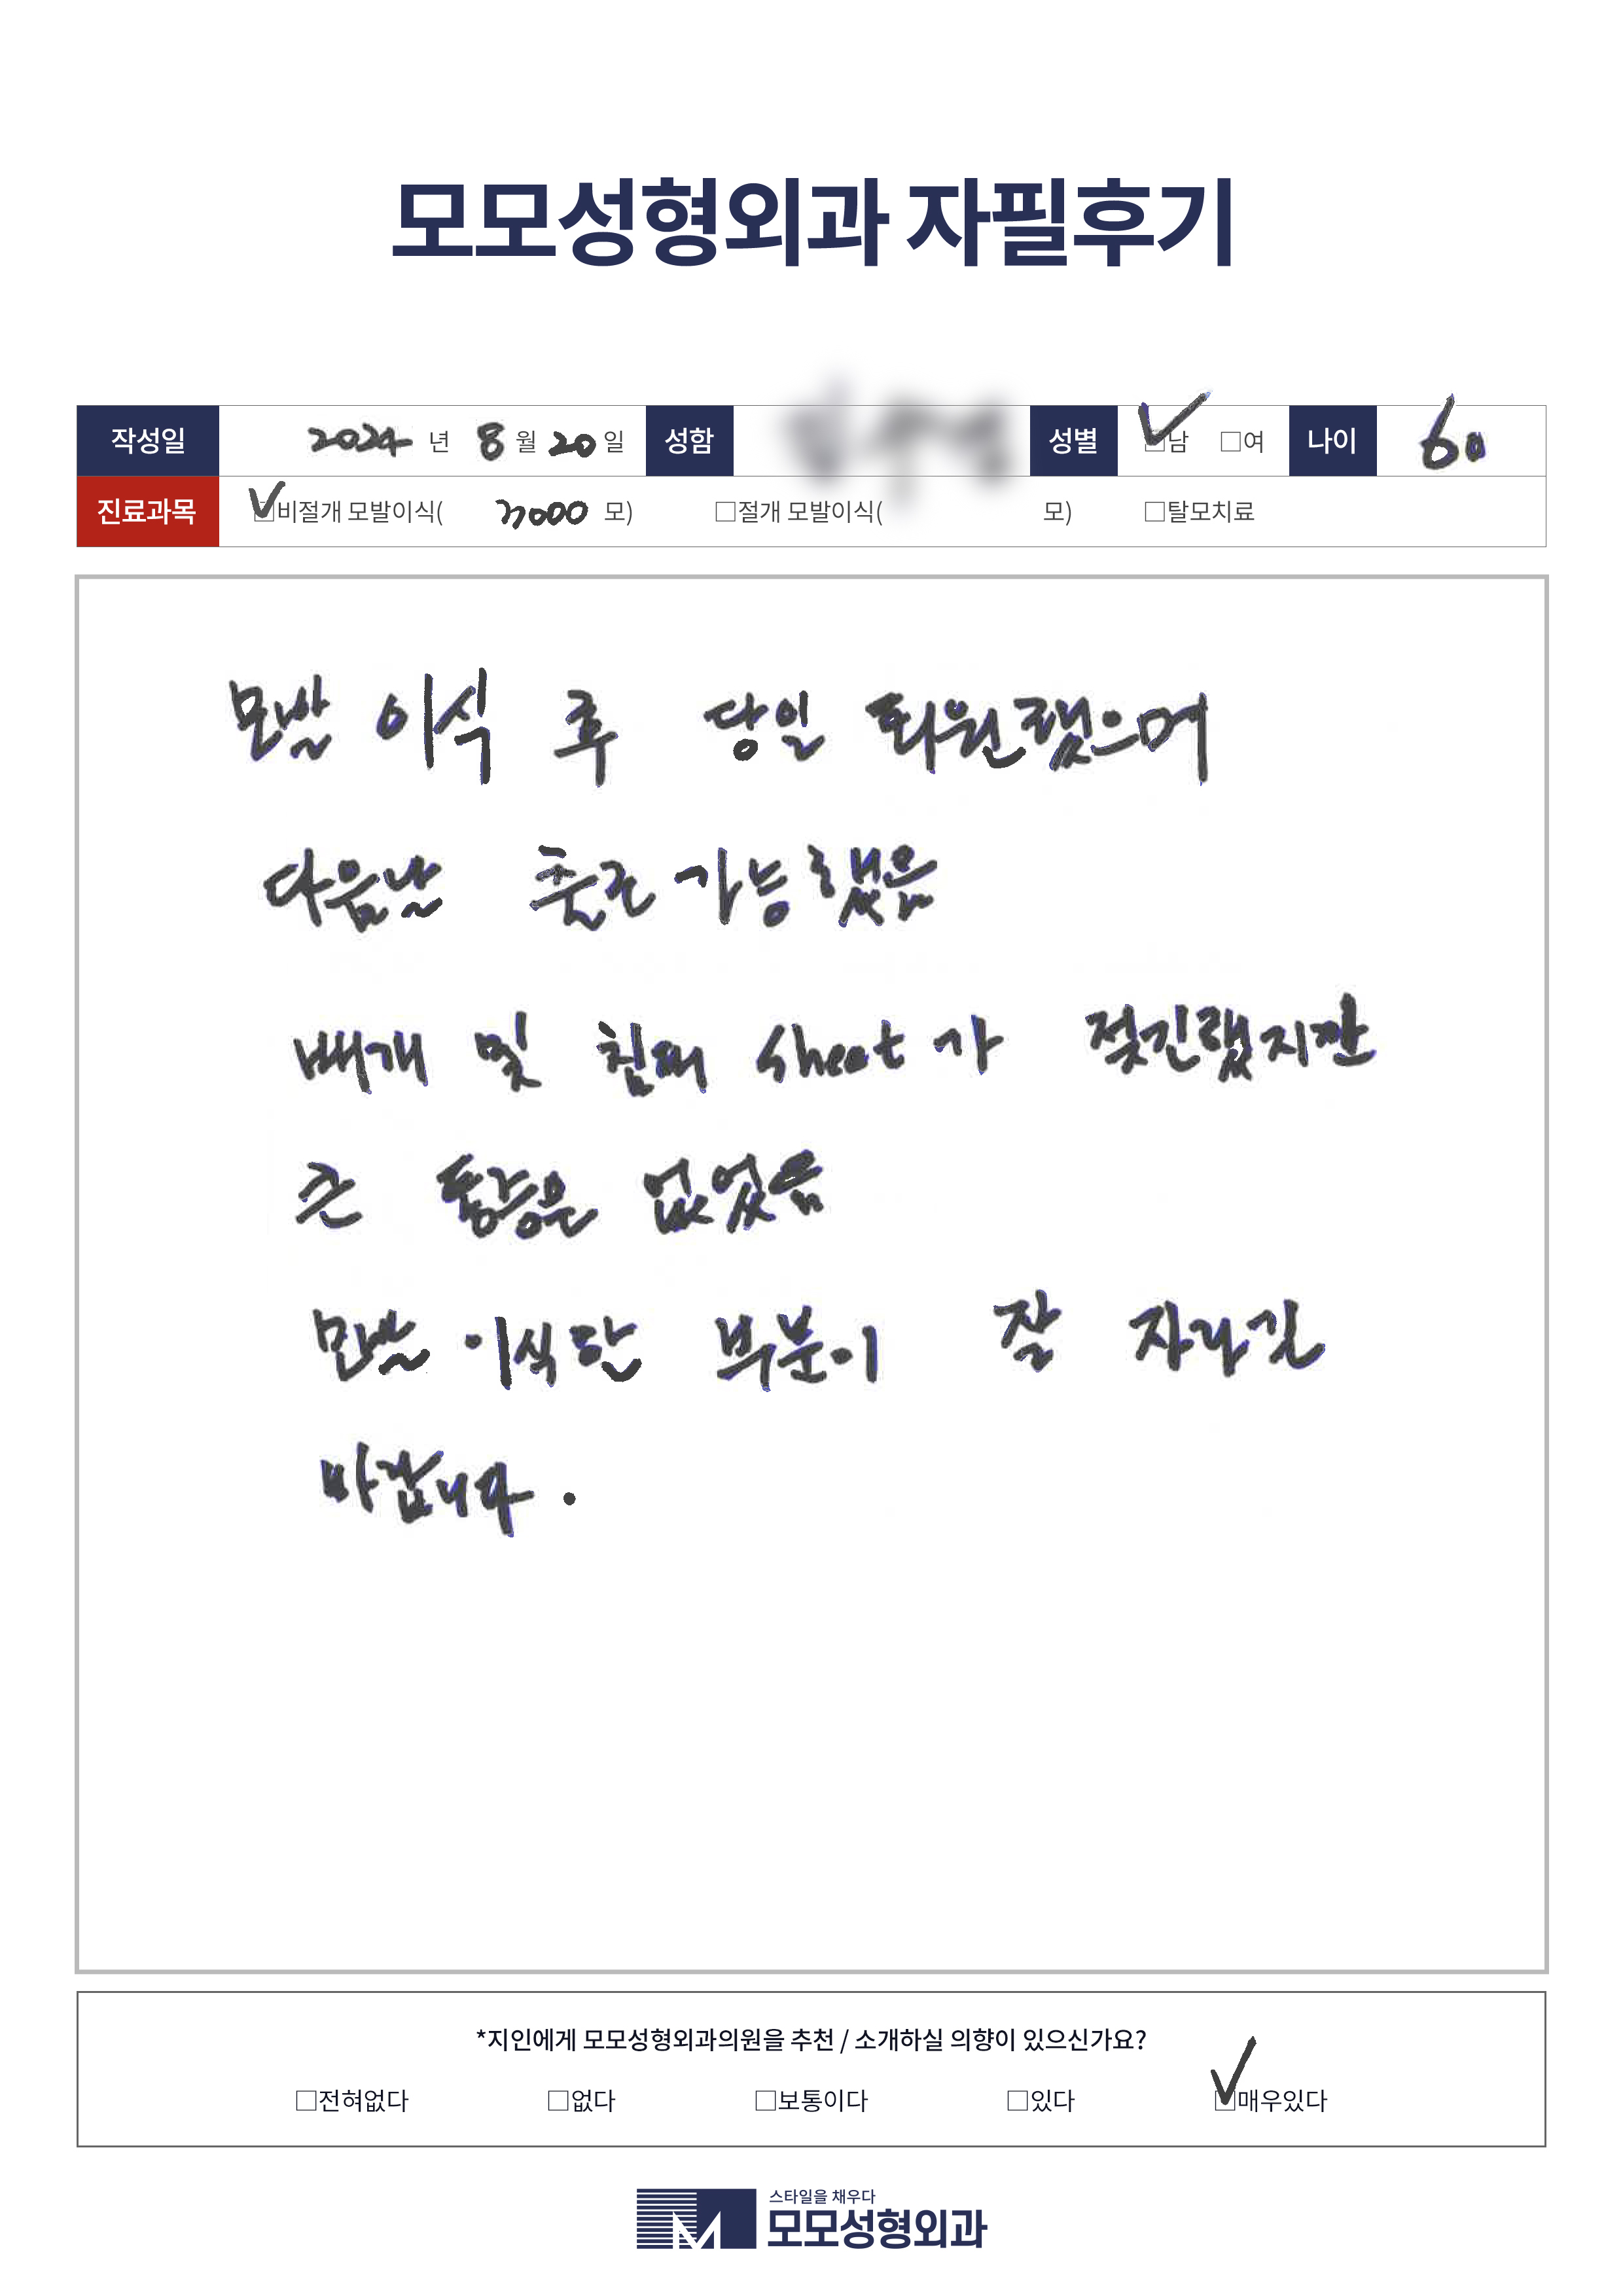 모모성형외과 자필후기
작성일 2024 년 8 월 20 일 성함 성별 ☑남 □여 나이 60
진료과목 ☑비절개 모발이식( 3000 모) □절개 모발이식( 모) □탈모치료
모발 이식 후 당일 퇴원했으며
다음날 출근가능했음
베개 및 침대 sheet가 젖긴했지만
큰 통증은 없었음
모발 이식한 부분이 잘 자라길
바랍니다.
*지인에게 모모성형외과의원을 추천 / 소개하실 의향이 있으신가요?
□전혀없다 □없다 □보통이다 □있다 ☑매우있다
스타일을 채우다
모모성형외과